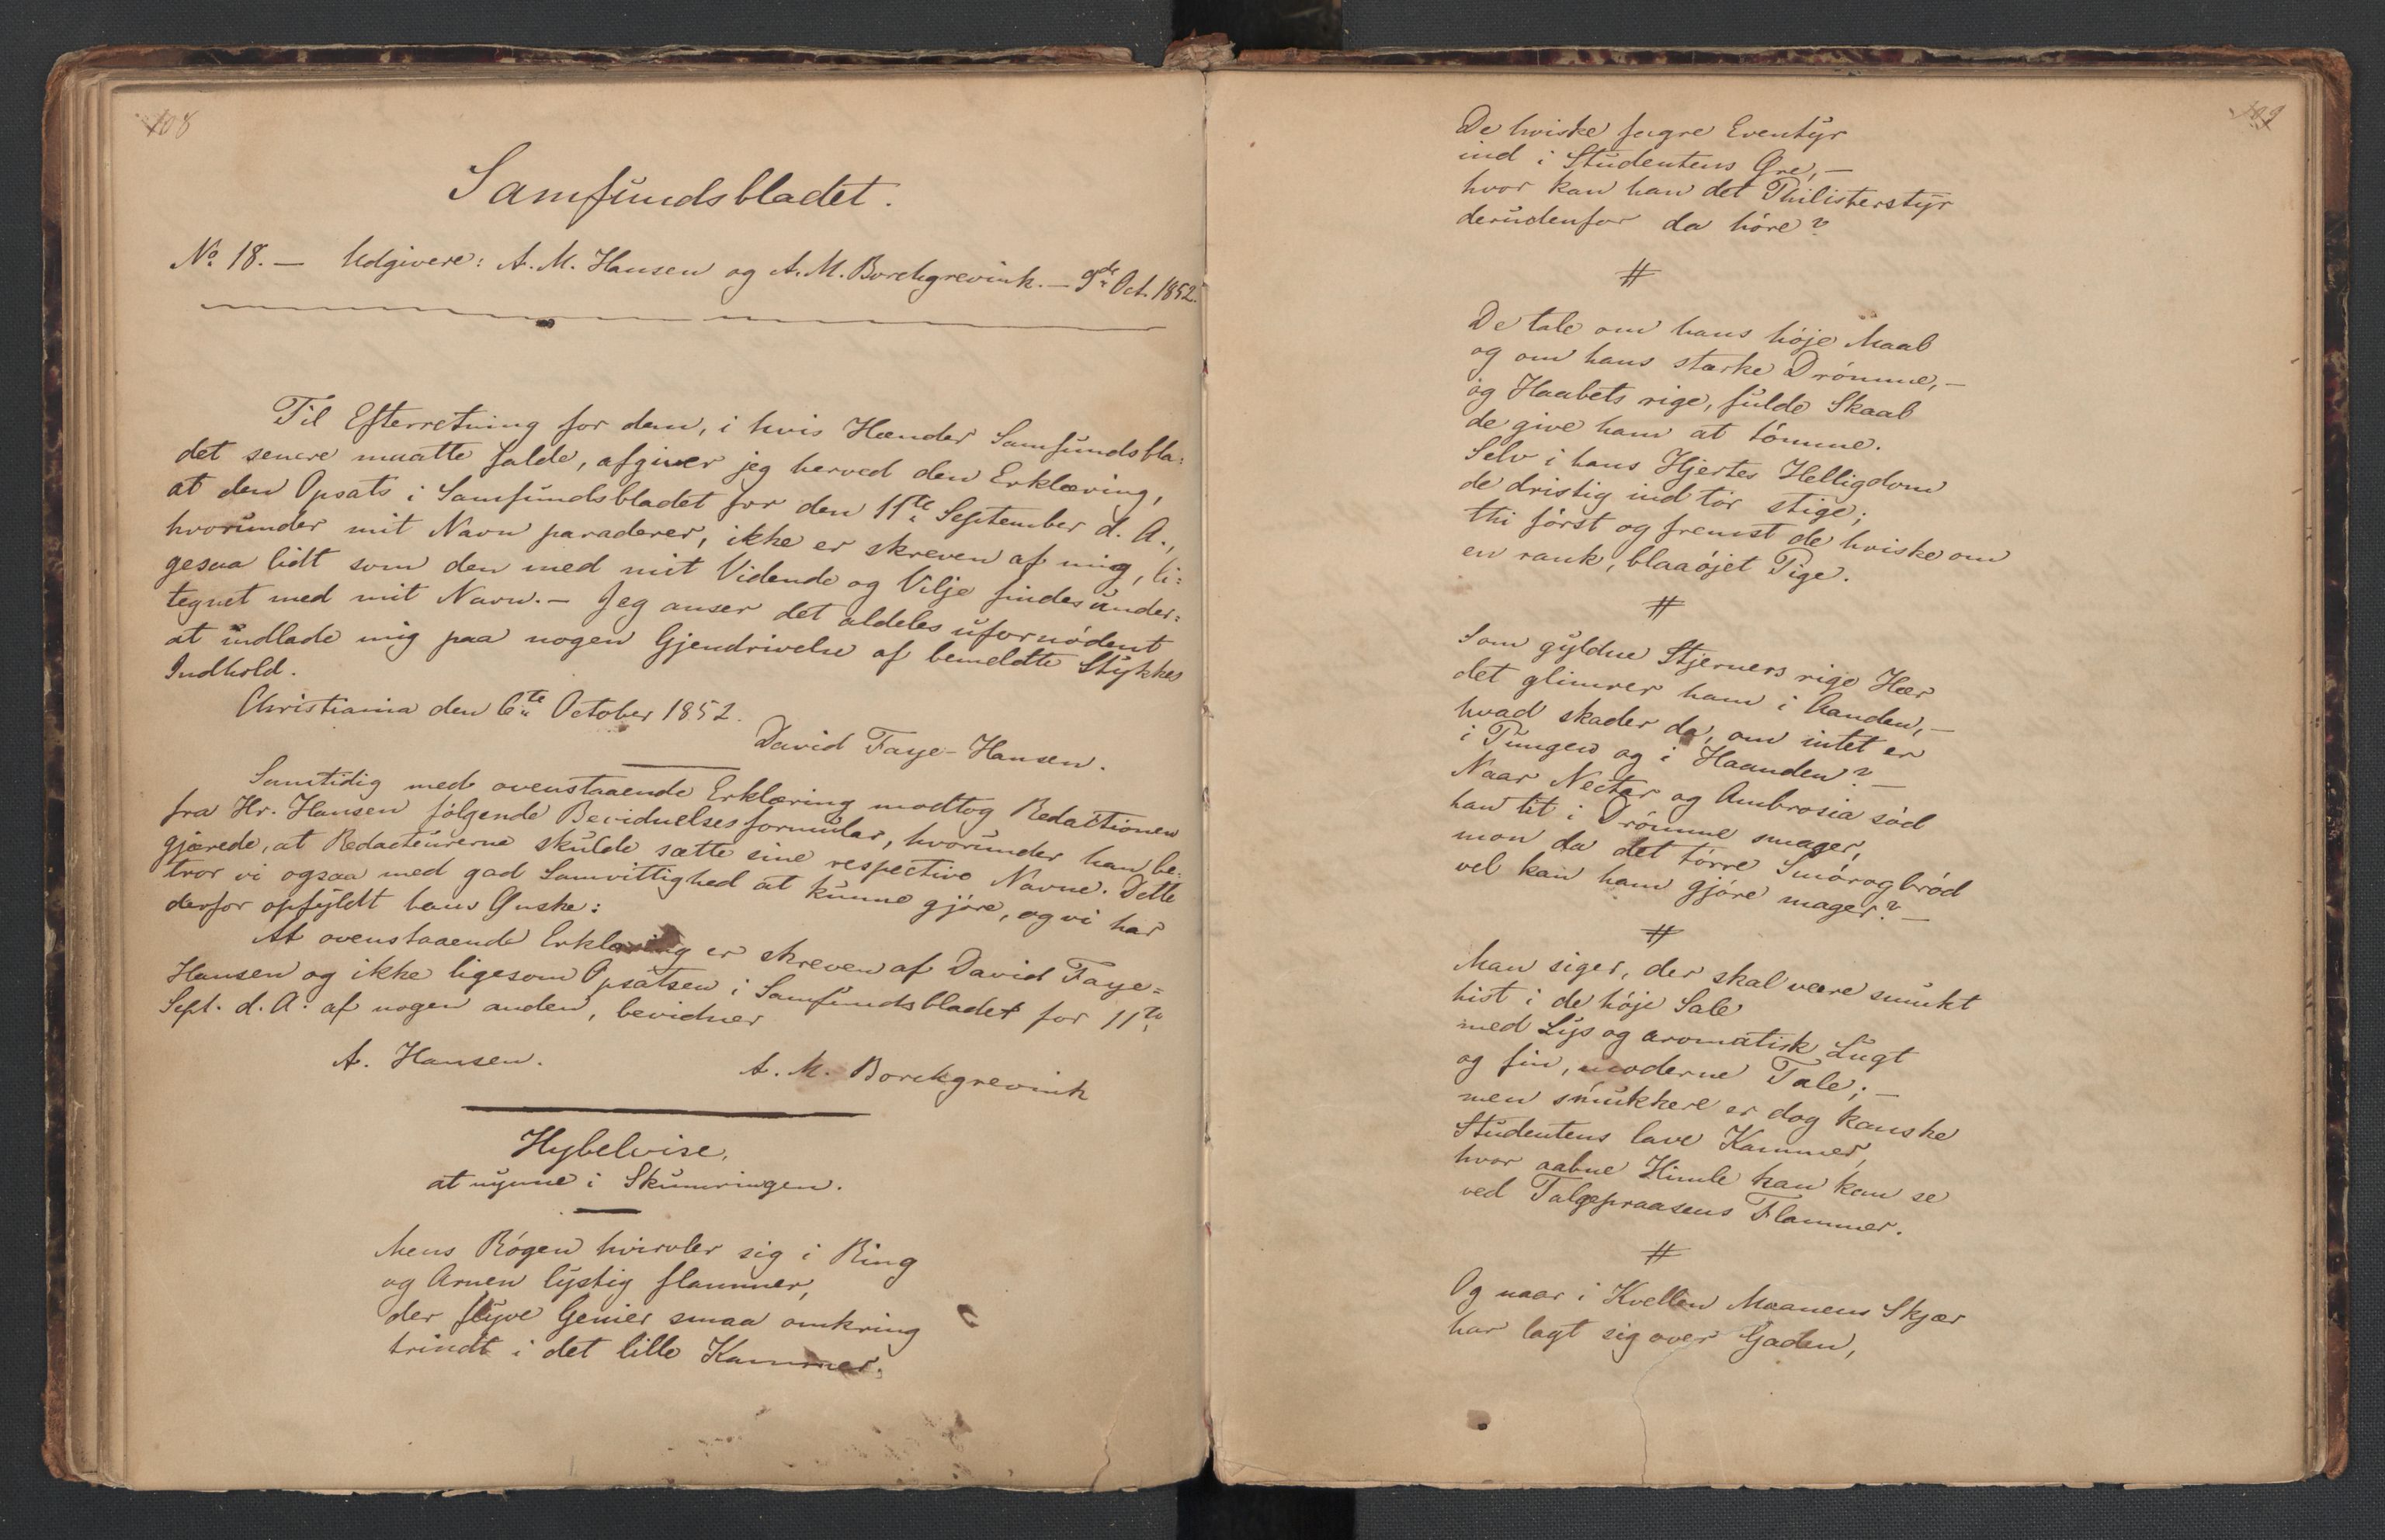 108
Samfundsbladet.
No 18. — Udgivere: A. M. Hansen og A. M. Borchgrevink. — 9de Oct. 1852.
Til Efterretning for dem, i hvis Hænder Samfundsbla=
det senere maatte falde, afgiver jeg herved den Erklæring,
at den Opsats i Samfundsbladet for den 11te September d. A.,
hvorunder mit Navn paraderer, ikke er skreven af mig, li=
gesaa lidt som den med mit Vidende og Vilje findes under=
tegnet med mit Navn. — Jeg anser det aldeles ufornødent
at indlade mig paa nogen Gjendrivelse af bemeldte Stykkes
Indhold.
Christiania den 6te October 1852.
David Faye-Hansen.
Samtidig med ovenstaaende Erklæring modtog Redactionen
fra Hr. Hansen følgende Bevidnelsesformular, hvorunder han be=
gjærede, at Redacteurerne skulde sætte sine respective Navne. Dette
tror vi ogsaa med god Samvittighed at kunne gjøre, og vi har
derfor opfyldt hans Ønske:
At ovenstaaende Erklæring er skreven af David Faye=
Hansen og ikke ligesom Opsatsen i Samfundsbladet for 11te
Sept. d. A. af nogen anden, bevidner
A. Hansen.
A. M. Borchgrevink
Hybelvise,
at nynne i Skumringen.
Mens Røgen hvirvler sig i Ring
og Arnen lystig flammer,
der flyve Genier smaa omkring
trindt i det lille Kammer.
109
De hviske fagre Eventyr
ind i Studentens Øre, —
hvor kan han det Philisterstyr
derudenfor da høre?
#
De tale om hans høje Maal
og om hans stærke Drømme, —
og Haabets rige, fulde Skaal
de give ham at tømme.
Selv i hans Hjertes Helligdom
de dristig ind tør stige;
thi først og fremst de hviske om
en rank, blaaøjet Pige.
#
Som gyldne Stjerners rige Hær
det glimrer ham i Aanden, —
hvad skader da, om intet er
i Pungen og i Haanden? —
Naar Nectar og Ambrosia sød
han tit i Drømme smager,
mon da det tørre Smørogbrød
vel kan ham gjøre mager? —
#
Man siger, der skal være smukt
hist i de høje Sale
med Lys og aromatisk Lugt
og fin, moderne Tale; —
men smukkere er dog kanske
Studentens lave Kammer,
hvor aabne Himle han kan se
ved Talgepraasens Flammer.
#
Og naar i Kvellen Maanens Skjær
har lagt sig over Gaden,